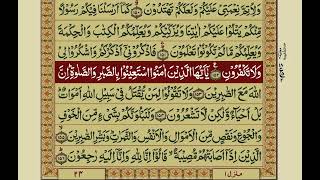 وَلِاُتِمَّ نِعْمَتِیْ عَلَیْكُمْ وَلَعَلَّكُمْ تَهْتَدُوْنَ كَمَاۤ اَرْسَلْنَا فِیْكُمْ رَسُوْلًا
مِّنْكُمْ یَتْلُوْا عَلَیْكُمْ اٰیٰتِنَا وَیُزَكِّیْكُمْ وَیُعَلِّمُكُمُ الْكِتٰبَ وَالْحِكْمَةَ
وَیُعَلِّمُكُمْ مَّا لَمْ تَكُوْنُوْا تَعْلَمُوْنَ فَاذْكُرُوْنِیْۤ اَذْكُرْكُمْ وَاشْكُرُوْا لِیْ
وَلَا تَكْفُرُوْنِ یٰۤاَیُّهَا الَّذِیْنَ اٰمَنُوا اسْتَعِیْنُوْا بِالصَّبْرِ وَالصَّلٰوةِ اِنَّ
اللّٰهَ مَعَ الصّٰبِرِیْنَ وَلَا تَقُوْلُوْا لِمَنْ یُّقْتَلُ فِیْ سَبِیْلِ اللّٰهِ اَمْوَاتٌ
بَلْ اَحْیَآءٌ وَّلٰكِنْ لَّا تَشْعُرُوْنَ وَلَنَبْلُوَنَّكُمْ بِشَیْءٍ مِّنَ الْخَوْفِ
وَالْجُوْعِ وَنَقْصٍ مِّنَ الْاَمْوَالِ وَالْاَنْفُسِ وَالثَّمَرٰتِ وَبَشِّرِ الصّٰبِرِیْنَ
الَّذِیْنَ اِذَاۤ اَصَابَتْهُمْ مُّصِیْبَةٌ قَالُوْۤا اِنَّا لِلّٰهِ وَاِنَّاۤ اِلَیْهِ رٰجِعُوْنَ
منزل ۱
۲۳